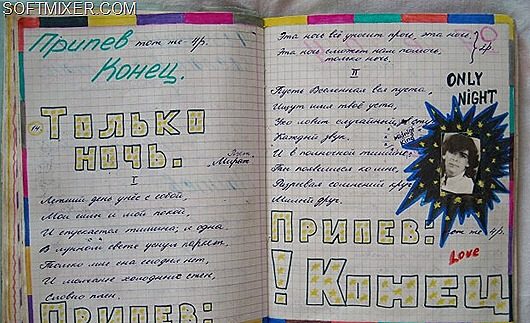 SOFTMIXER.COM
Припев тот же 4р.
Конец.
14
Только
ночь.
Поёт
Мираж.
I
Летний день унёс с собой,
Мои сны и мой покой,
И опускается тишина, я одна
В лунном свете уснул паркет,
Только мне сна сегодня нет,
И молчание холодных стен,
Словно плен.
Припев:
Эта ночь всё уносит прочь, эта ночь.
Эта ночь сможет нам помочь,
только ночь.
4р.
II
Пусть Вселенная вся пуста,
Ищут имя твоё уста,
Ухо ловит случайный
Каждый звук.
И в полночной тишине
Ты появишься ко мне,
Разрывая сомнений круг
Милый друг.
ONLY
NIGHT
Припев:
тот же 4р.
Love
! Конец